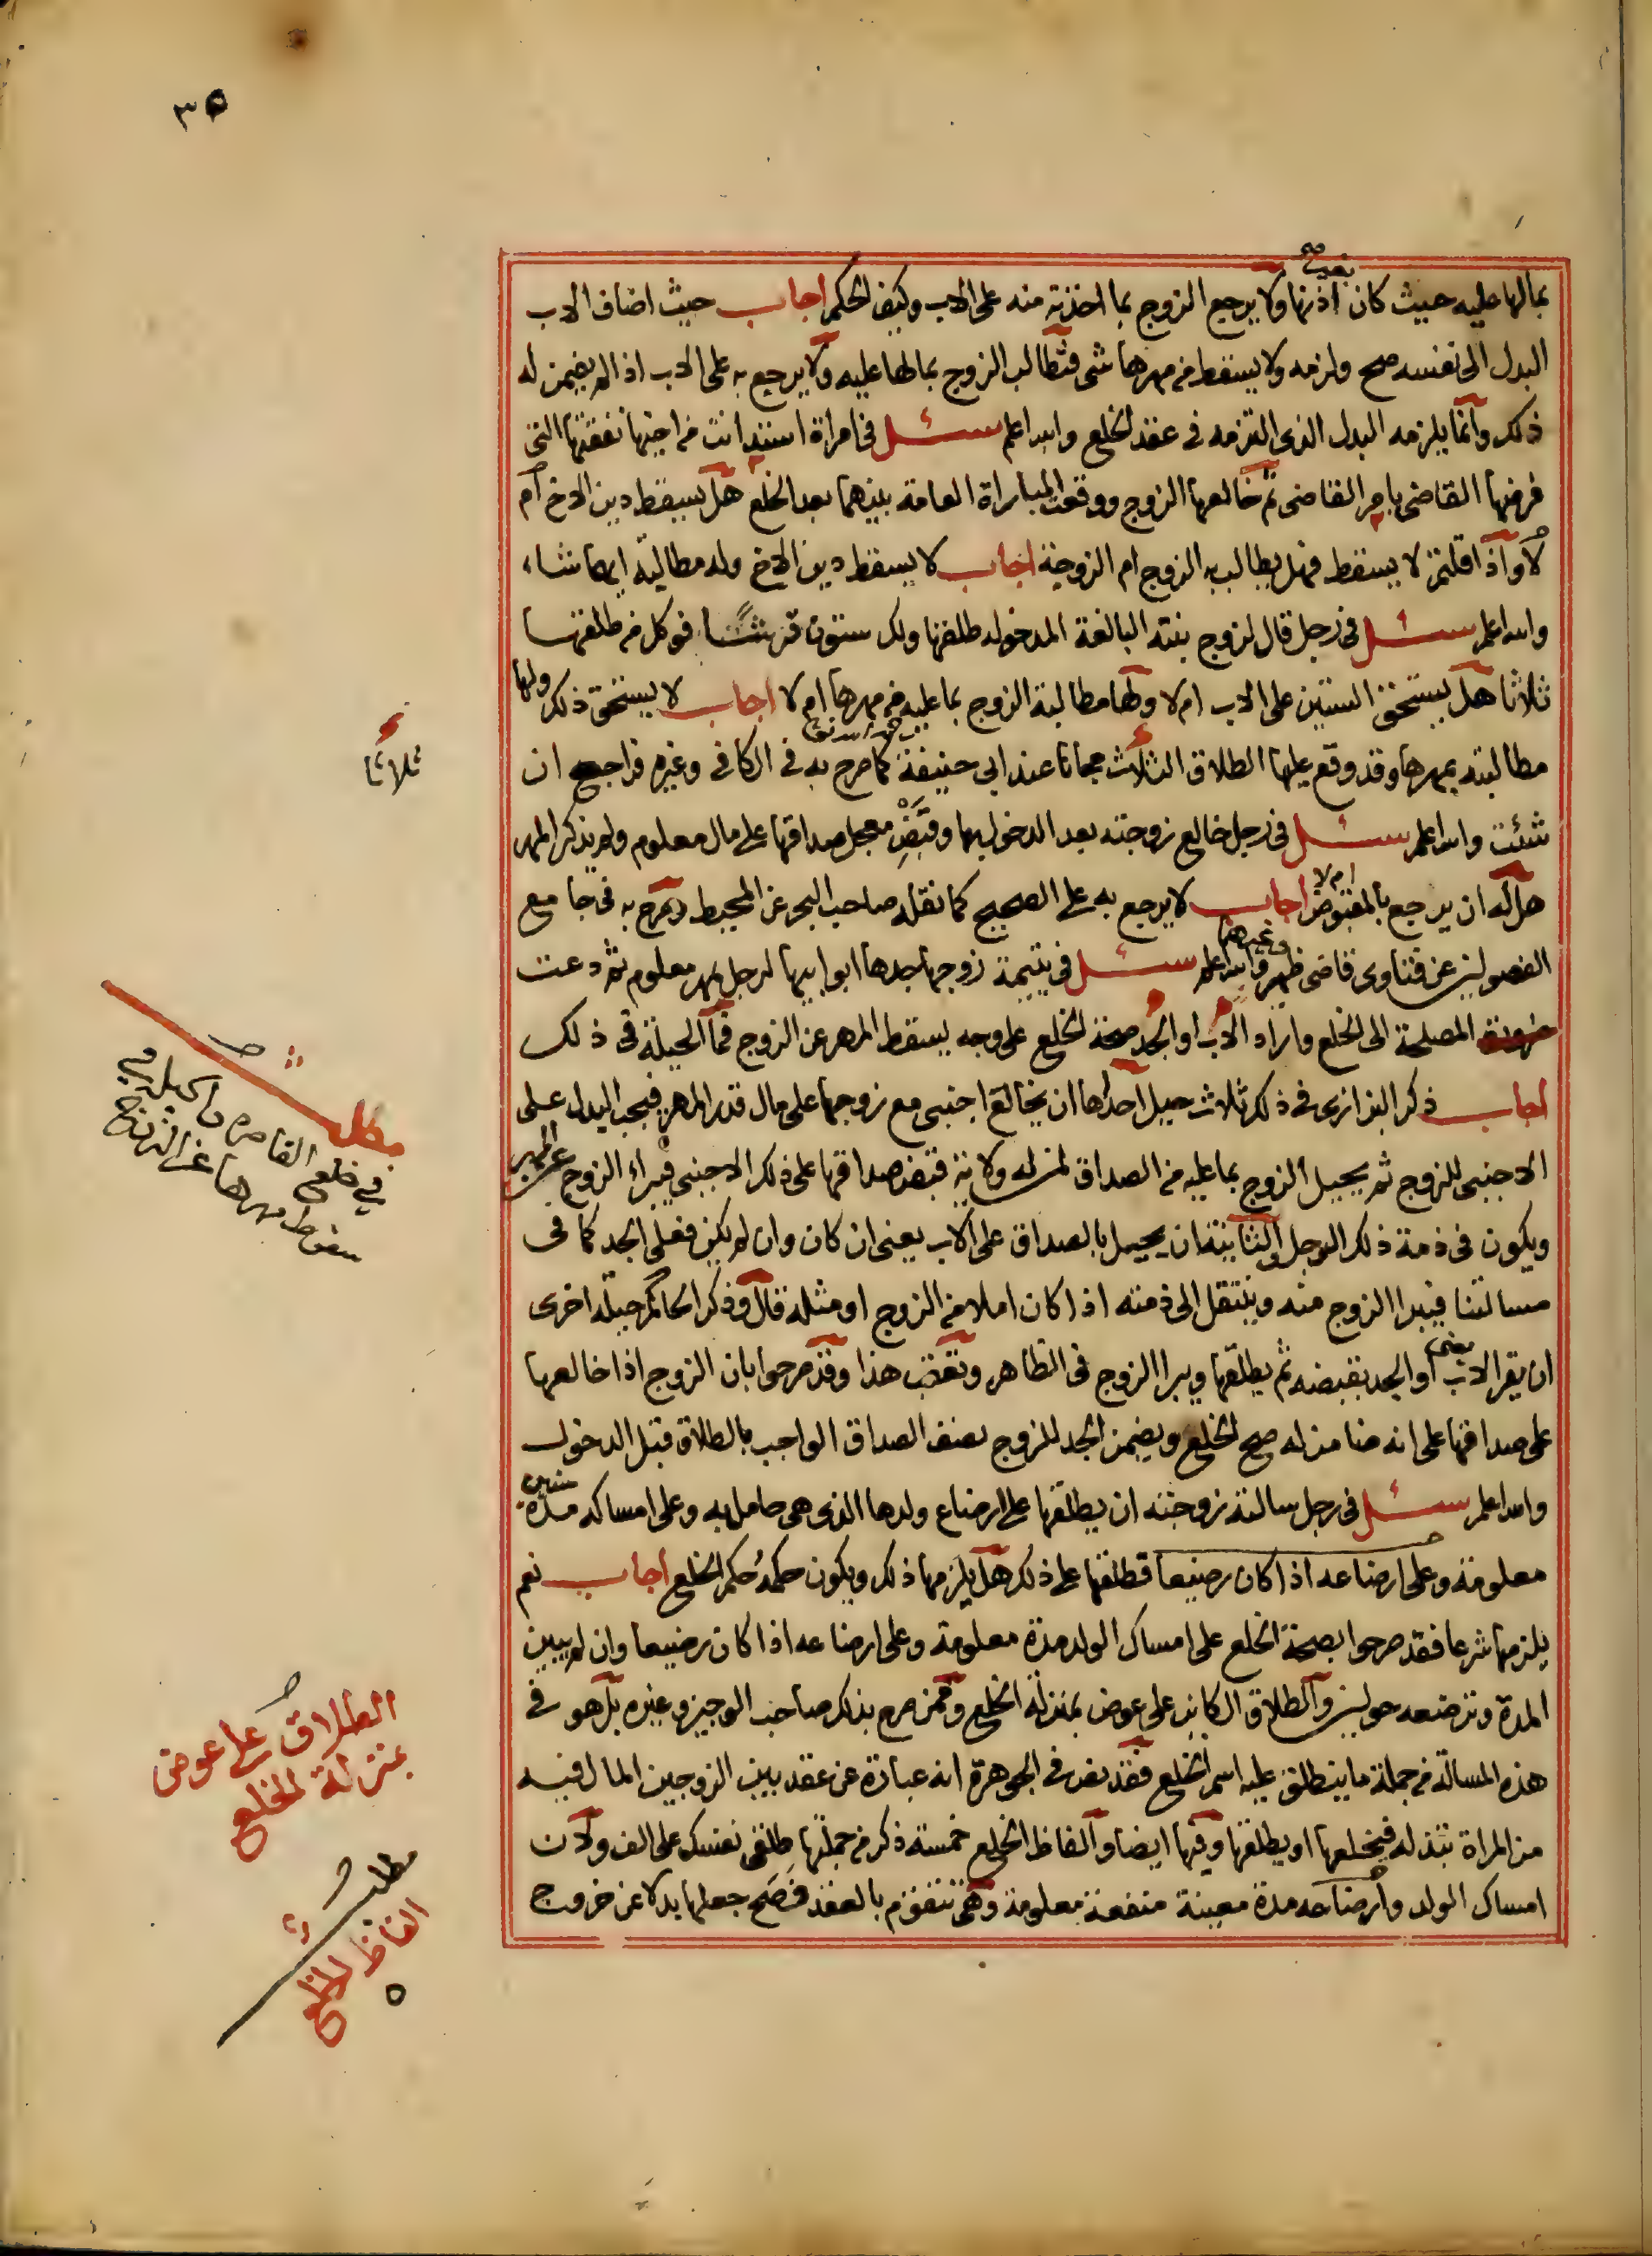 ٣٥
بمالها عليه حيث كان بغير اذنها ولا يرجع الزوج بما اخذته منه على الاب وكيف الحكم اجاب حيث اضاف الاب
البدل الى نفسه صح ولزمه ولا يسقط من مهرها شى فتطالب الزوج بمالها عليه ولا يرجع به على الاب اذ لم يضمن له
ذلك وانما يلزمه البدل الذى التزمه فى عقد الخلع والله اعلم سئل فى امراة استدانت من اخيها نفقتها التى
فرضها القاضى بامر القاضى ثم خالعها الزوج ووقعت المباراة العامة بينهما بعد الخلع هل يسقط دين الاخ ام
لا واذا قلتم لا يسقط فهل يطالب به الزوج ام الزوجة اجاب لا يسقط دين الاخ وله مطالبة ايهما شاء
والله اعلم سئل فى رجل قال لزوج بنته البالغة المدخولة طلقها ولك ستون قرشا فوكل من طلقها
ثلاثا هل يستحق الستين على الاب ام لا ولها مطالبة الزوج بما عليه من مهرها ام لا اجاب لا يستحق ذلك ولها
مطالبته بمهرها وقد وقع عليها الطلاق الثلاث مجانا عند ابى حنيفة رحمه الله تعالى كما صرح به فى الكافى وغيره فراجع ان
ثلاثا
شئت والله اعلم سئل فى رجل خالع زوجته بعد الدخول بها وقبض معجل صداقها على مال معلوم ولم يذكر المهر
هل له ان يرجع بالمقبوض ام لا اجاب لا يرجع به على الصحيح كما نقله صاحب البحر عن المحيط وصرح به فى جامع
الفصولين عن فتاوى قاضى ظهير وغيرهما والله اعلم سئل فى يتيمة زوجها جدها ابو ابيها لرجل بمهر معلوم ثم دعت
المصلحة الى الخلع واراد الاب او الجد صحة الخلع على وجه يسقط المهر عن الزوج فما الحيلة فى ذلك
اجاب ذكر البزازى فى ذلك ثلاث حيل احداها ان يخالع اجنبى مع زوجها على مال قدر المهر فيجب البدل على
الاجنبى للزوج ثم يحيل الزوج بما عليه من الصداق لمن له ولاية قبض صداقها على ذلك الاجنبى فيبراء الزوج عن المهر
ويكون فى ذمة ذلك الرجل والثانية ان يحيل بالصداق على الاب يعنى ان كان وان لم يكن فعلى الجد كما فى
مسالتنا فيبرا الزوج منه وينتقل الى ذمته اذا كان املا من الزوج او مثله قال وذكر الحاكم حيلة اخرى
ان يقر الاب يعنى او الجد بقبضه ثم يطلقها ويبرا الزوج فى الظاهر وتعقب هذا وقد صرحوا بان الزوج اذا خالعها
على صداقها على انه ضامن له صح الخلع ويضمن الجد للزوج نصف الصداق الواجب بالطلاق قبل الدخول
والله اعلم سئل فى رجل سالته زوجته ان يطلقها على ارضاع ولدها الذى هى حامل به وعلى امساكه مدة سنين
معلومة وعلى ارضاعه اذا كان رضيعا فطلقها على ذلك هل يلزمها ذلك ويكون حكمه حكم الخلع اجاب نعم
يلزمها شرعا فقد صرحوا بصحة الخلع على امساك الولد مدة معلومة وعلى ارضاعه اذا كان رضيعا وان لم يبين
المدة وترضعه حولين والطلاق الكاين على عوض بمنزلة الخلع وممن صرح بذلك صاحب الوجيز وغيره بل هو فى
هذه المسالة من جملة ما ينطلق عليه اسم الخلع فقد نص فى الجوهرة انه عبارة عن عقد بين الزوجين المال فيه
من المراة تبذله فيخلعها او يطلقها وفيها ايضا والفاظ الخلع خمسة ذكر من جملتها طلقى نفسك على الف ولان
امساك الولد وارضاعه مدة معينة منفعة معلومة وهى تتقوم بالعقد فصح جعلها بدلا عن خروج
مطلب
فى خلع القاصرة والحيلة فى
سقوط مهرها عن الزوج
الطلاق على عوض
بمنزلة الخلع
مطلب
الفاظ الخلع
٥